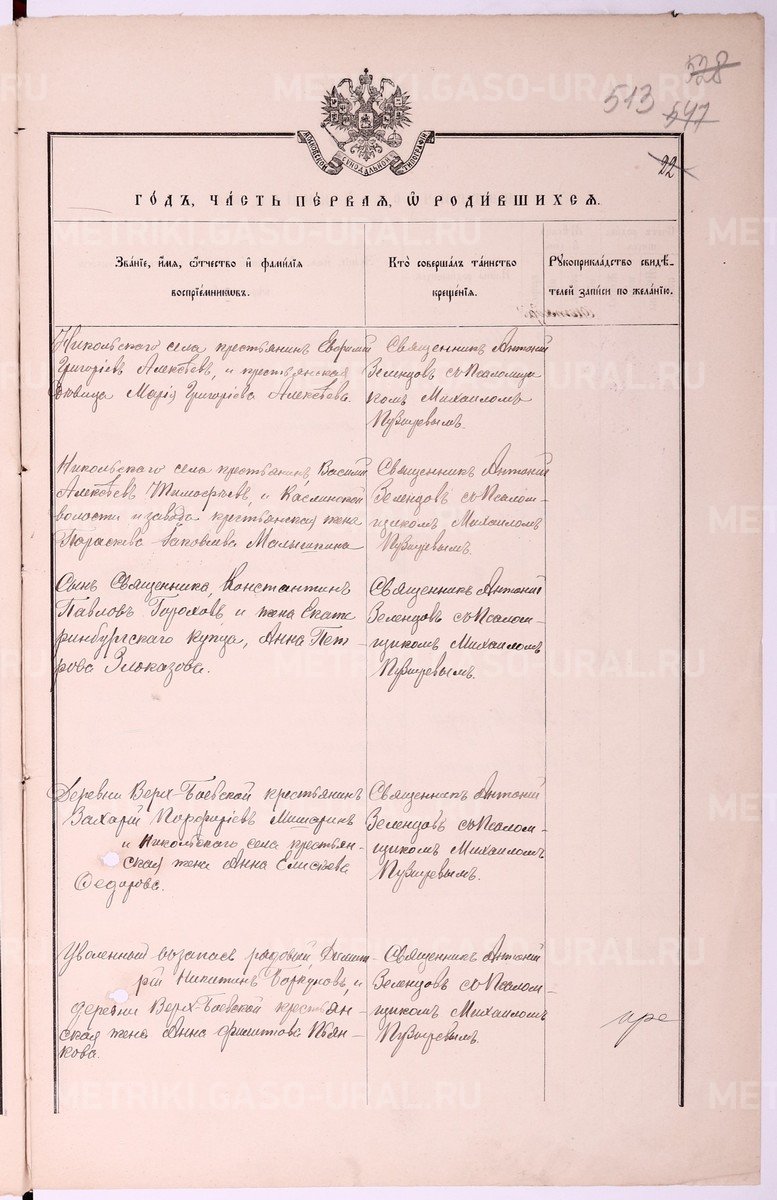 528
513 547
22
МОСКОВСКОЙ СѴНОДАЛЬНОЙ ТИПОГРАФІИ
ГО́ДЪ, ЧА́СТЬ ПЕ́РВАЯ, Ѡ҆ РОДИ́ВШИХСЯ.
Зва́нїе, и҆́мя, ѻ҆́тчество и҆ фами́лїя
воспрїе́мникѡвъ.
Кто̀ соверша́лъ та́инство
креще́нїя.
Рꙋкоприкла́дство свидѣ́-
телей за́писи по жела́нїю.
Никольскаго села крестьянинъ Евфимій
Григоріевъ Алексѣевъ, и крестьянская
вдовица Марія Григоріева Алексѣева.
Священникъ Антоній
Зеленцовъ съ Псаломщи
комъ Михаиломъ
Пузыревымъ.
Никольскаго села крестьянинъ Василій
Алексѣевъ Тимофѣевъ, и Каслинской
волости и завода крестьянская жена
Параскева Іаковлева Малышкина
Священникъ Антоній
Зеленцовъ съ Псалом-
щикомъ Михаиломъ
Пузыревымъ.
Сынъ Священника, Константинъ
Павловъ Гороховъ и жена Екате
ринбургскаго купца, Анна Пет-
рова Злоказова.
Священникъ Антоній
Зеленцовъ съ Псалом-
щикомъ Михаиломъ
Пузыревымъ.
Деревни Верх-Боевской крестьянинъ
Захарій Порфиріевъ Мишаринъ
и Никольскаго села крестьян-
ская жена Анна Елисѣева
Федорова.
Священникъ Антоній
Зеленцовъ съ Псалом-
щикомъ Михаиломъ
Пузыревымъ.
Уволенный въ запасъ рядовый Димит-
рій Никитинъ Боркуновъ, и
деревни Верх-Боевской крестьян-
ская жена Анна Филиппова Пьян-
кова.
Священникъ Антоній
Зеленцовъ съ Псалом-
щикомъ Михаиломъ
Пузыревымъ.
METRIKI.GASO-URAL.RU